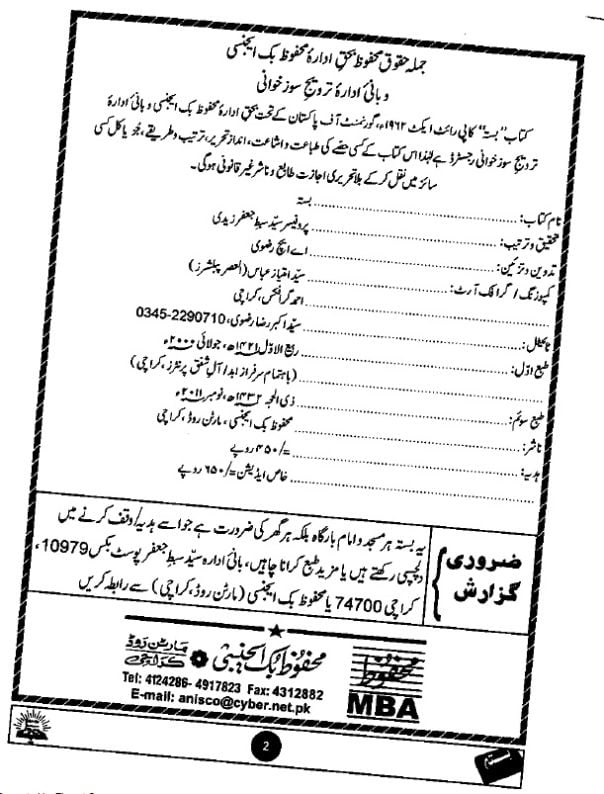 جملہ حقوق محفوظ بحق ادارۂ محفوظ بک ایجنسی
و بانیٔ ادارۂ ترویج سوز خوانی
کتاب "بستہ" کاپی رائٹ ایکٹ ۱۹۶۲ء، گورنمنٹ آف پاکستان کے تحت بحق ادارۂ محفوظ بک ایجنسی و بانیٔ ادارۂ
ترویج سوز خوانی رجسٹرڈ ہے لہٰذا اس کتاب کے کسی حصّے کی طباعت و اشاعت، انداز تحریر، ترتیب و طریقے، جُز یا کل کسی
سائز میں نقل کر کے بلا تحریری اجازت طابع و ناشر غیر قانونی ہوگی۔
نام کتاب: بستہ
تحقیق و ترتیب: پروفیسر سیّد سبطِ جعفر زیدی
تدوین و تزئین: اے ایچ رضوی
کمپوزنگ / گرافک آرٹ: سیّد امتیاز عباس (العصر پبلشرز)
احمد گرافکس، کراچی
ٹائٹل: سیّد اکبر رضا رضوی، 0345-2290710
طبع اوّل: ربیع الاوّل ۱۴۲۱ھ، جولائی ۲۰۰۰ء
(باہتمام سرفراز ابد / آلِ شفق پرنٹرز، کراچی)
طبع سوئم: ذی الحجہ ۱۴۳۲ھ، نومبر ۲۰۱۱ء
ناشر: محفوظ بک ایجنسی، مارٹن روڈ، کراچی
ہدیہ: =/۴۵۰ روپے
خاص ایڈیشن =/۶۵۰ روپے
ضروری گزارش
یہ بستہ ہر مسجد و امام بارگاہ بلکہ ہر گھر کی ضرورت ہے جو اسے ہدیہ/وقف کرنے میں
دلچسپی رکھتے ہیں یا مزید طبع کرانا چاہیں، بانیٔ ادارہ سیّد سبطِ جعفر پوسٹ بکس 10979،
کراچی 74700 یا محفوظ بک ایجنسی (مارٹن روڈ، کراچی) سے رابطہ کریں
محفوظ
MBA
محفوظ بک ایجنسی
مارٹن روڈ
کراچی
Tel: 4124286- 4917823 Fax: 4312882
E-mail: anisco@cyber.net.pk
2
بستہ